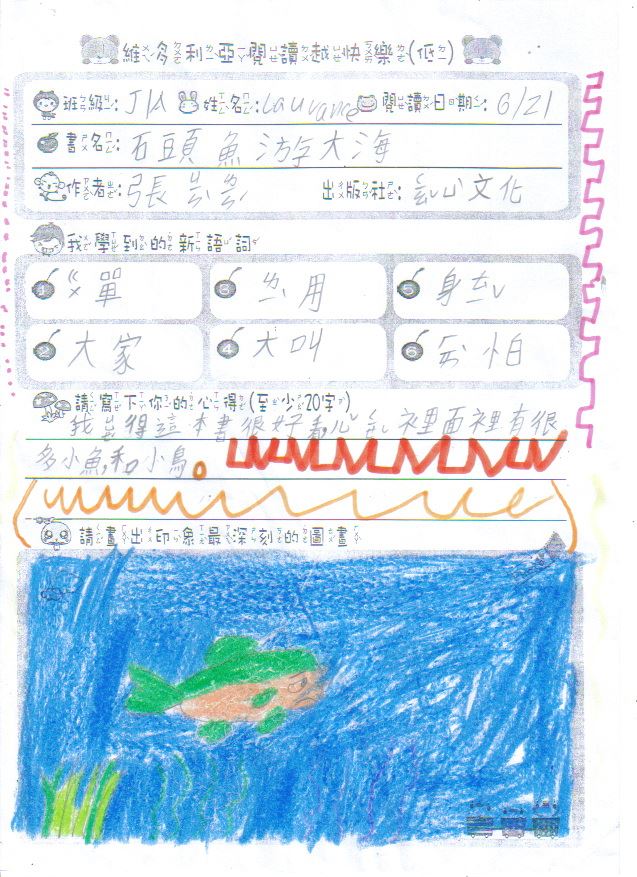 維多利亞閱讀越快樂(低)
班級: J1A 姓名: Laurance 閱讀日期: 6/21
書名: 石頭魚游大海
作者: 張
出版社: 文化
我學到的新語詞
1 ㄍㄨ單 3 用 5 身
2 大家 4 大叫 6 怕
請寫下你的心得(至少20字)
我 得這本書很好 心 裡面裡有很
多小魚,和小鳥。
請畫出印象最深刻的圖畫